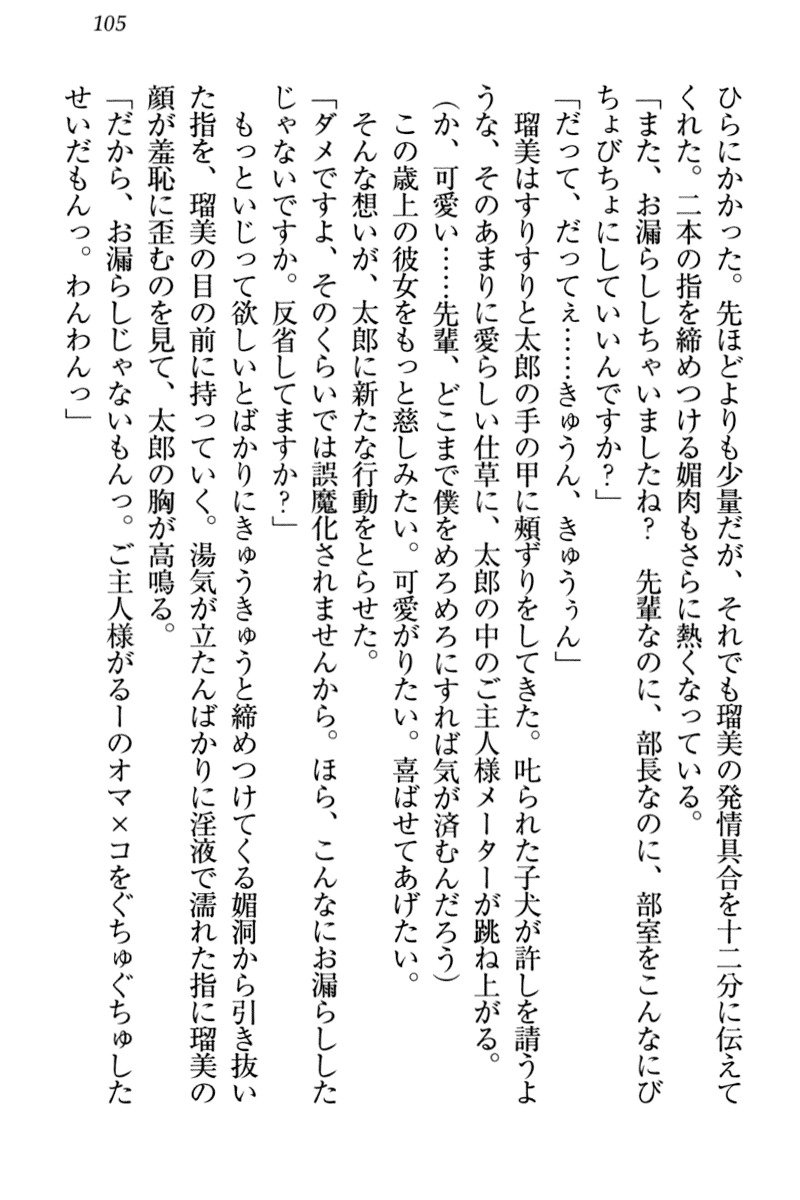 105
ひらにかかった。先ほどよりも少量だが、それでも瑠美の発情具合を十二分に伝えて
くれた。二本の指を締めつける媚肉もさらに熱くなっている。
「また、お漏らししちゃいましたね？　先輩なのに、部長なのに、部室をこんなにび
ちょびちょにしていいんですか？」
「だって、だってぇ……きゅうん、きゅうぅん」
　瑠美はすりすりと太郎の手の甲に頰ずりをしてきた。叱られた子犬が許しを請うよ
うな、そのあまりに愛らしい仕草に、太郎の中のご主人様メーターが跳ね上がる。
（か、可愛い……先輩、どこまで僕をめろめろにすれば気が済むんだろう）
　この歳上の彼女をもっと慈しみたい。可愛がりたい。喜ばせてあげたい。
　そんな想いが、太郎に新たな行動をとらせた。
「ダメですよ、そのくらいでは誤魔化されませんから。ほら、こんなにお漏らしした
じゃないですか。反省してますか？」
　もっといじって欲しいとばかりにきゅうきゅうと締めつけてくる媚洞から引き抜い
た指を、瑠美の目の前に持っていく。湯気が立たんばかりに淫液で濡れた指に瑠美の
顔が羞恥に歪むのを見て、太郎の胸が高鳴る。
「だから、お漏らしじゃないもんっ。ご主人様がるーのオマ×コをぐちゅぐちゅした
せいだもんっ。わんわんっ」